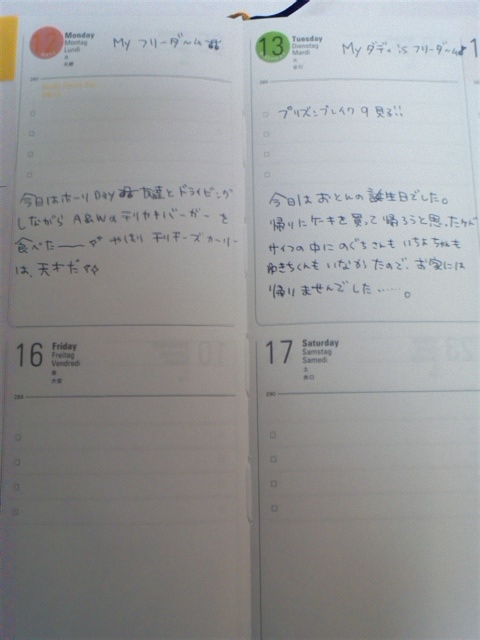 12 Monday
Montag
Lundi
My フリーダーム
今日はホーリDay 友達とドライビング
しながら A&Wのテリヤキバーガーを
食べたーー やはり チリチーズカーリー
は、天才だ
13 Tuesday
Dienstag
Mardi
My ダディ is フリーダーム
プリズンブレイク 9 見る!!
今日はおとんの誕生日でした。
帰りにケーキを買って帰ろうと思ったけど
サイフの中にのぐちさんもいちよちゃんも
ゆきちくんもいなかたので、お家には
帰りませんでした……。
16 Friday
Freitag
Vendredi
17 Saturday
Samstag
Samedi